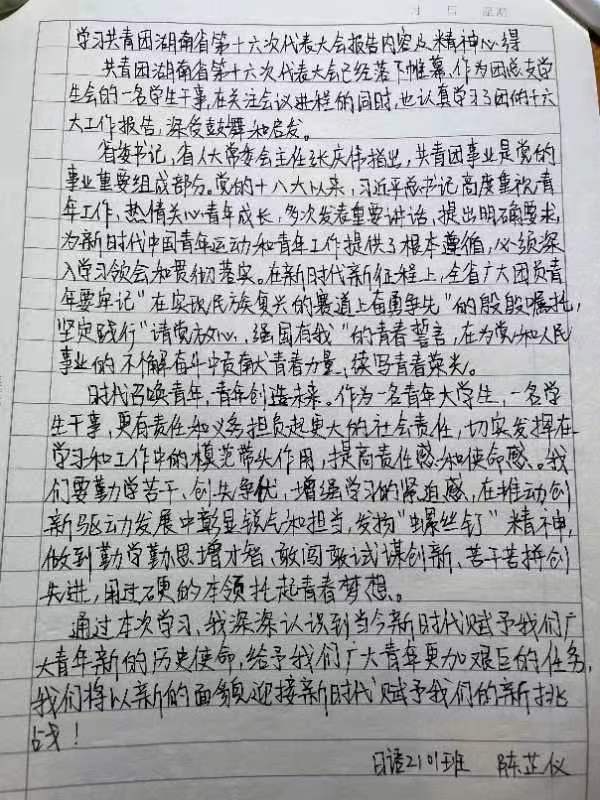 学习共青团湖南省第十六次代表大会报告内容及精神心得
共青团湖南省第十六次代表大会已经落下帷幕,作为团总支学
生会的一名学生干事,在关注会议进程的同时,也认真学习了团的十六
大工作报告,深受鼓舞和启发。
省委书记,省人大常委会主任张庆伟指出,共青团事业是党的
事业重要组成部分。党的十八大以来,习近平总书记高度重视青
年工作、热情关心青年成长,多次发表重要讲话、提出明确要求,
为新时代中国青年运动和青年工作提供了根本遵循,必须深
入学习领会和贯彻落实。在新时代新征程上,全省广大团员青
年要牢记"在实现民族复兴的赛道上奋勇争先"的殷殷嘱托,
坚定践行"请党放心、强国有我"的青春誓言,在为党和人民
事业的不懈奋斗中贡献青春力量、续写青春荣光。
时代召唤青年,青年创造未来。作为一名青年大学生,一名学
生干事,更有责任和义务担负起更大的社会责任,切实发挥在
学习和工作中的模范带头作用,提高责任感和使命感。我
们要勤学苦干、创先争优,增强学习的紧迫感,在推动创
新驱动发展中彰显锐气和担当,发扬"螺丝钉"精神,
做到勤学勤思增才智、敢闯敢试谋创新、苦干苦拼创
先进,用过硬的本领托起青春梦想。
通过本次学习,我深深认识到当今新时代赋予我们广
大青年新的历史使命,给予我们广大青年更加艰巨的任务,
我们将以新的面貌迎接新时代赋予我们的新挑
战!
日语2101班 陈芷仪